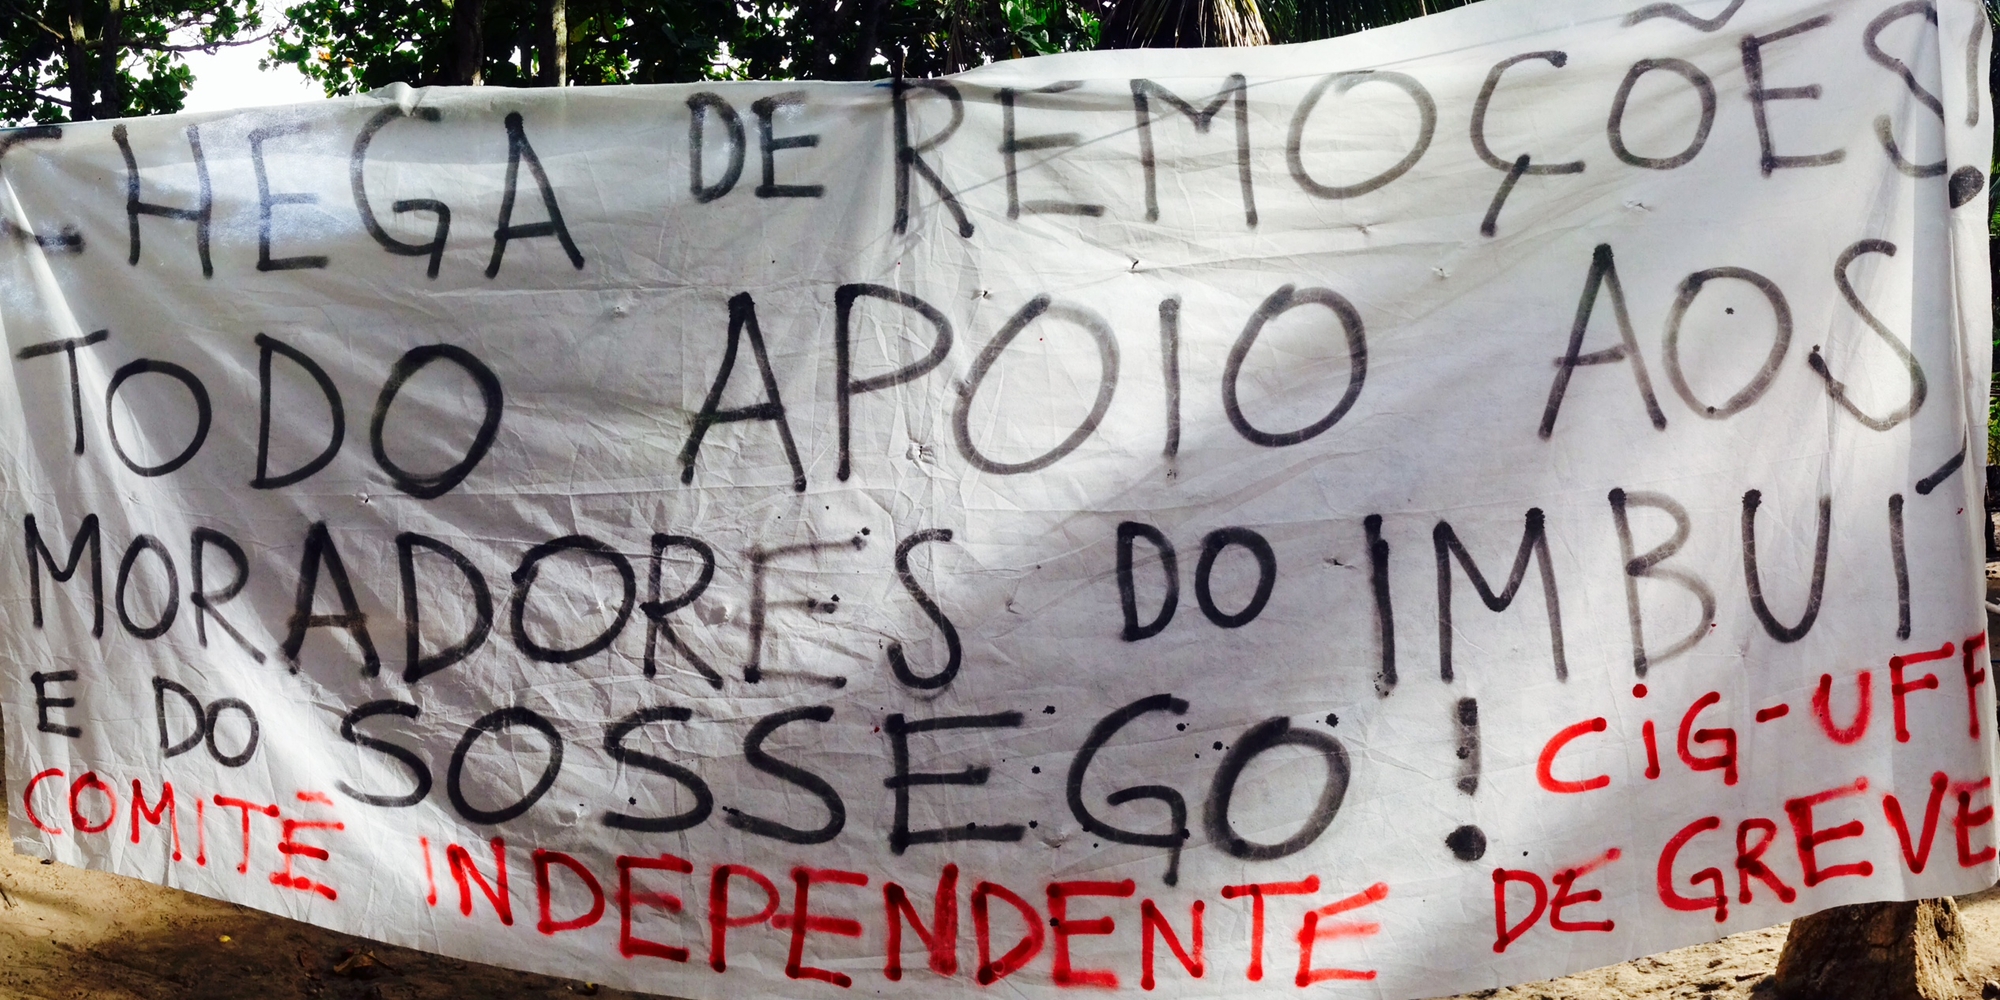 CHEGA DE REMOÇÕES!
TODO APOIO AOS
MORADORES DO IMBUÍ
E DO SOSSEGO! CIG-UFF
COMITÊ INDEPENDENTE DE GREVE